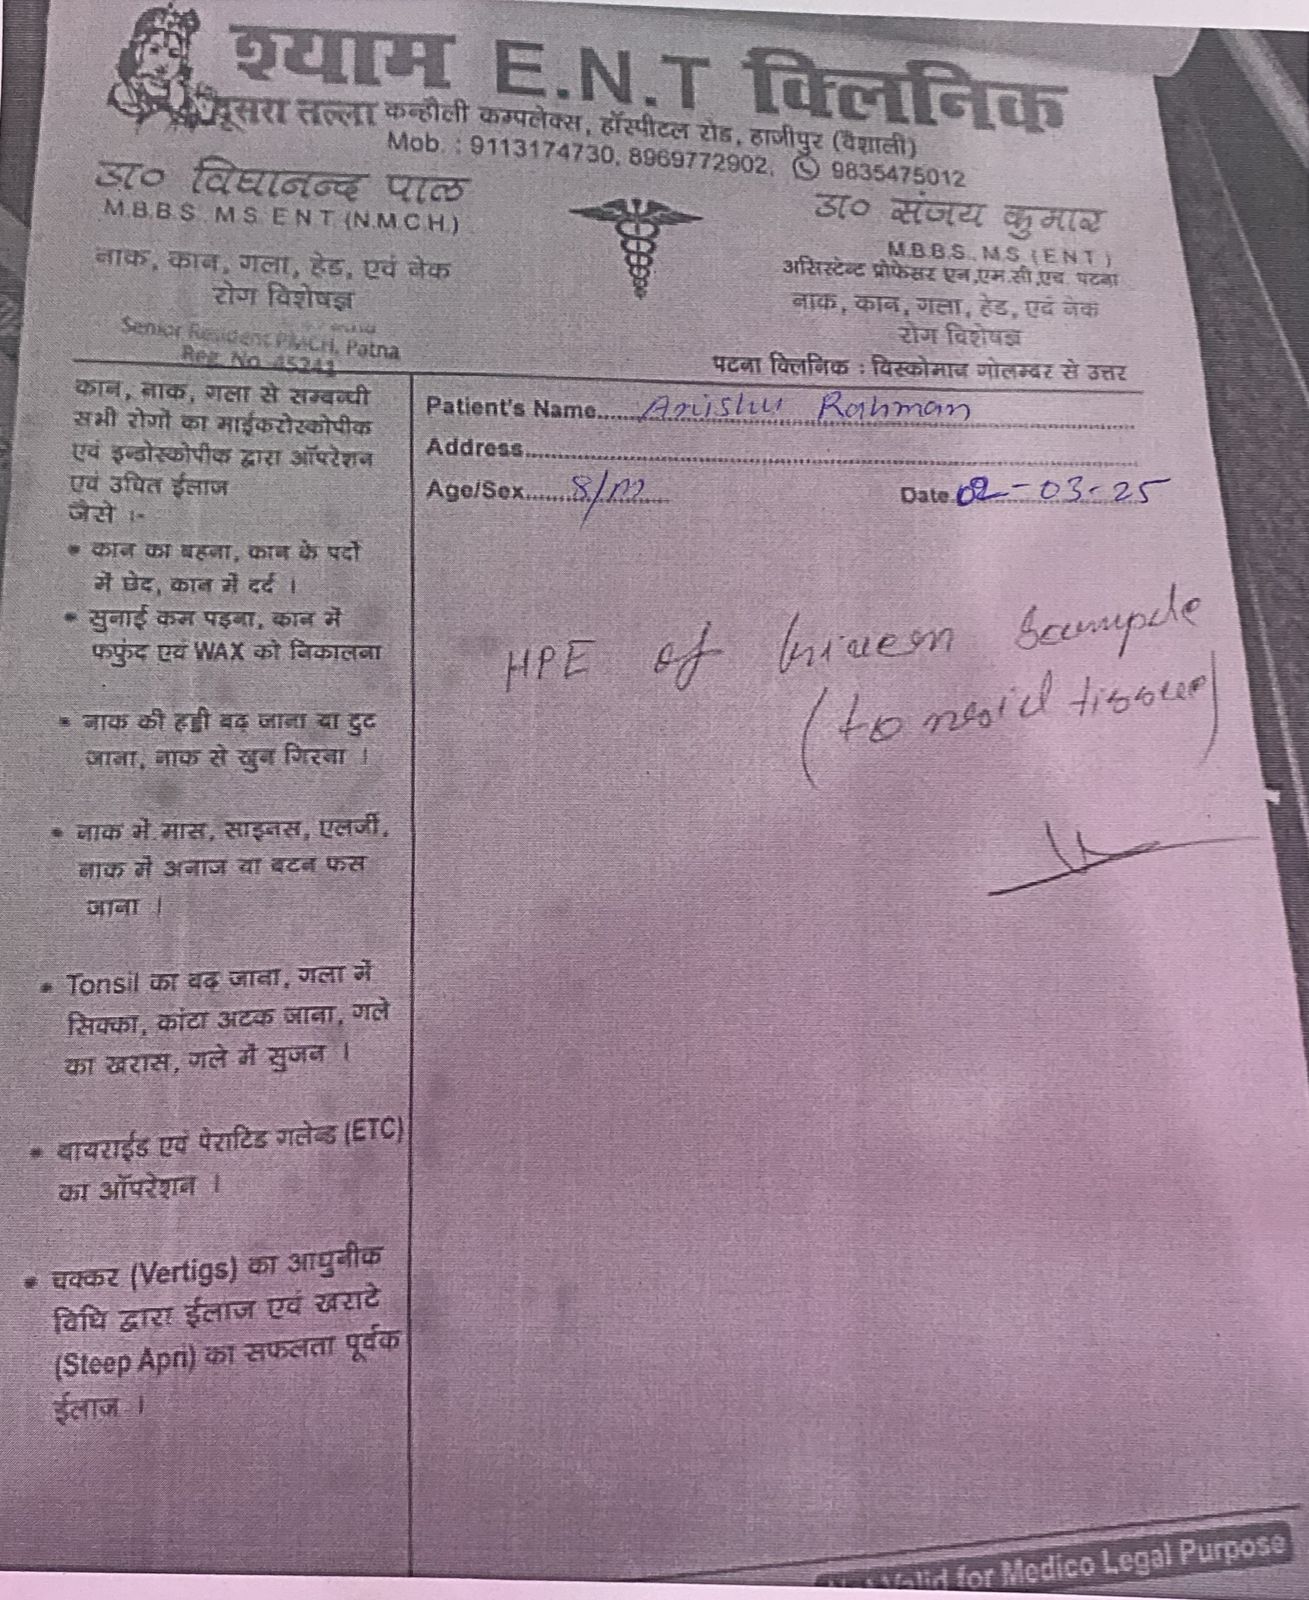 श्याम E.N.T क्लिनिक
दूसरा तल्ला कन्हौली कम्पलेक्स, हॉस्पीटल रोड, हाजीपुर (वैशाली)
Mob. : 9113174730, 8969772902, 9835475012
डा० विद्यानन्द पाल
M.B.B.S. M S E N T (N.M.C.H.)
नाक, कान, गला, हेड, एवं नेक
रोग विशेषज्ञ
Senior Resident PMCH, Patna
Reg. No. 45241
डा० संजय कुमार
M.B.B.S., M.S. (E N T )
असिस्टेन्ट प्रोफेसर एन,एम.सी,एच. पटना
नाक, कान, गला, हेड, एवं नेक
रोग विशेषज्ञ
पटना क्लिनिक : विस्कोमान गोलम्बर से उत्तर
कान, नाक, गला से सम्बन्धी
सभी रोगों का माईकरोस्कोपीक
एवं इन्डोस्कोपीक द्वारा ऑपरेशन
एवं उचित ईलाज
जैसे :-
• कान का बहना, कान के पर्दा
में छेद, कान में दर्द ।
• सुनाई कम पड़ना, कान में
फफुंद एवं WAX को निकालना
• नाक की हड्डी बढ़ जाना या टुट
जाना, नाक से खुन गिरना ।
• नाक में मास, साइनस, एलर्जी,
नाक में अनाज या बटन फस
जाना ।
• Tonsil का बढ़ जाना, गला में
सिक्का, कांटा अटक जाना, गले
का खरास, गले में सुजन ।
• थायराईड एवं पेराटिड गलेन्ड (ETC)
का ऑपरेशन ।
• चक्कर (Vertigs) का आधुनीक
विधि द्वारा ईलाज एवं खराटे
(Steep Apri) का सफलता पूर्वक
ईलाज ।
Patient's Name...... Anishu Rahman
Address
Age/Sex....... 8/m
Date 02-03-25
HPE of Given Sample
(tonsil tissue)
Not Valid for Medico Legal Purpose